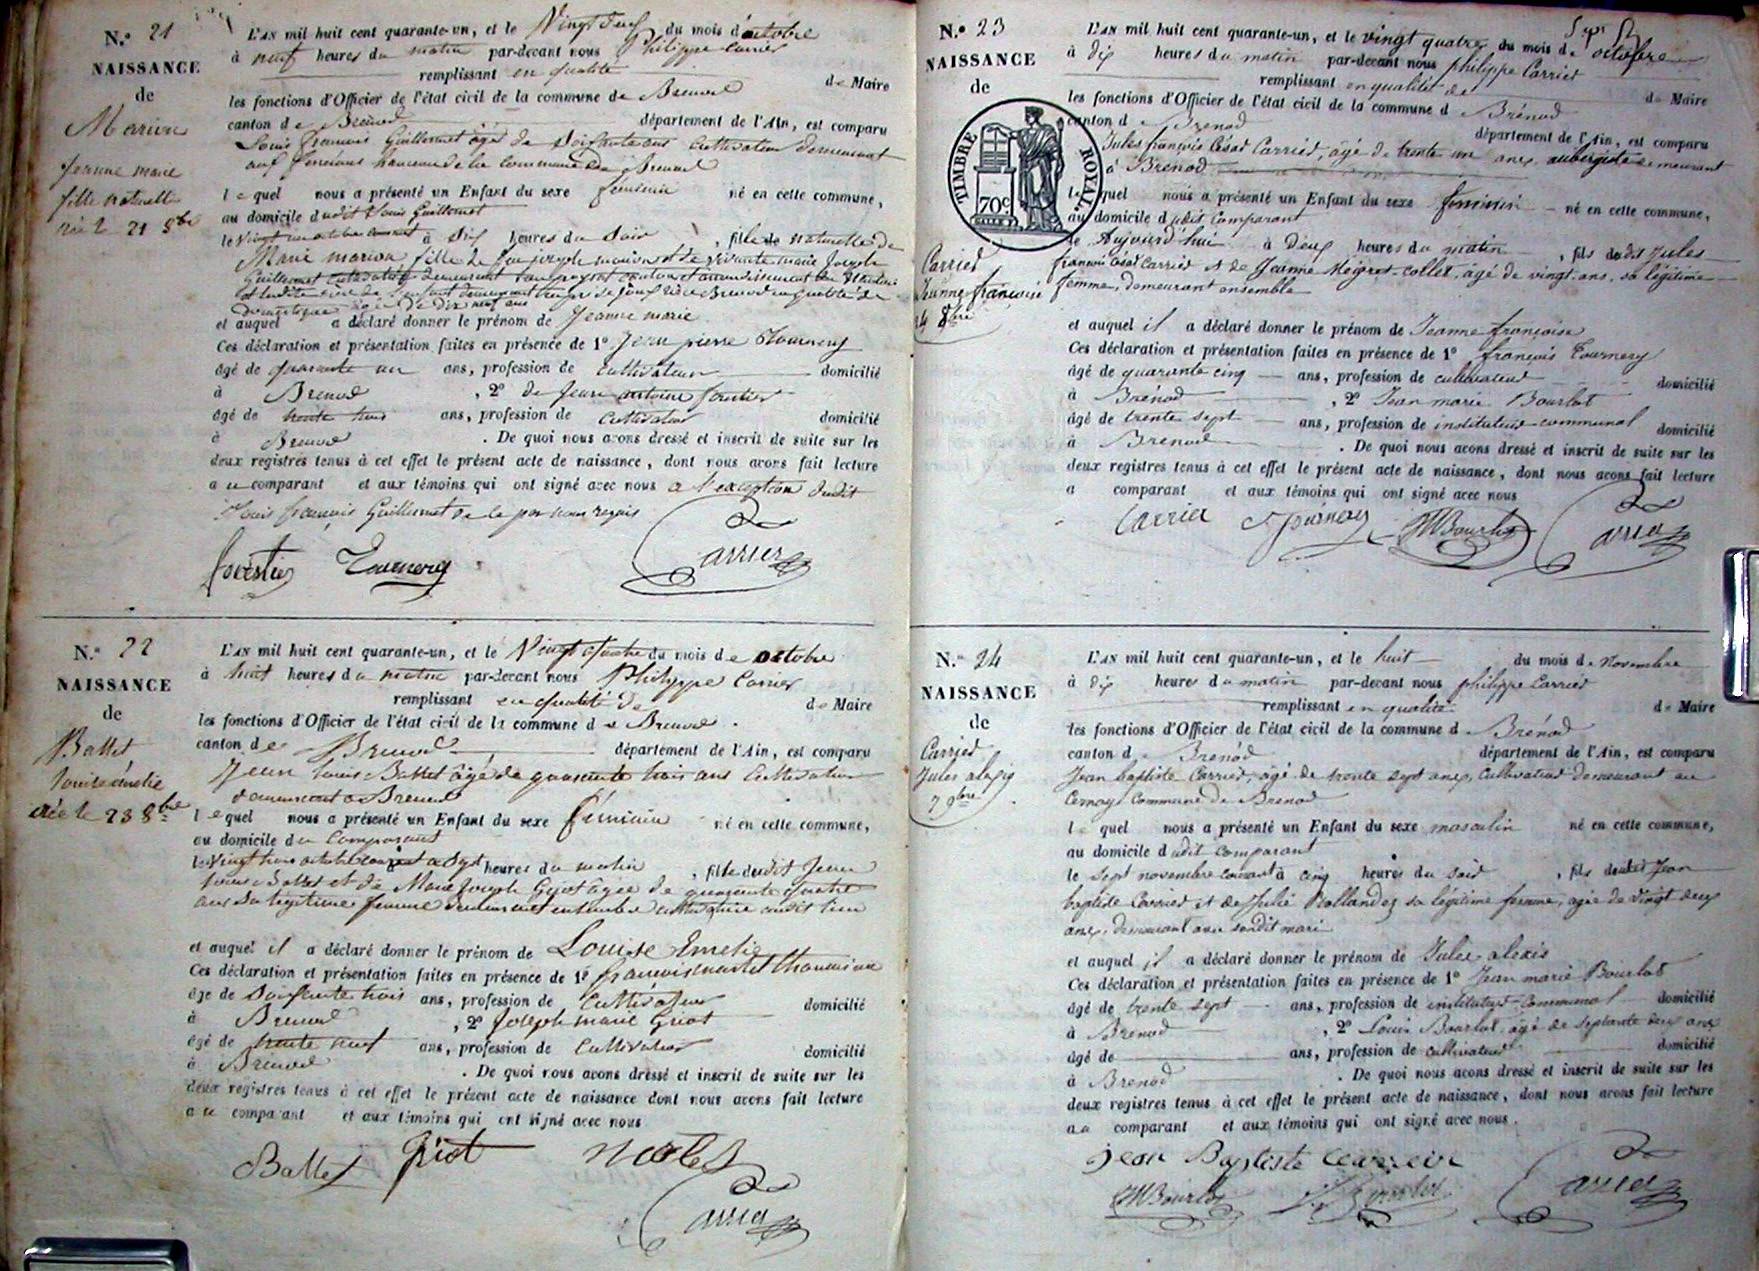 N.º 21
NAISSANCE
de
Marion
Jeanne marie
fille naturelle
née le 21 8bre
L'AN mil huit cent quarante-un, et le Vingt deux du mois d'octobre
à neuf heures du matin par-devant nous Philippe Carrier
remplissant en qualité de Maire
les fonctions d'Officier de l'état civil de la commune de Brenod
canton de Brenod département de l'Ain, est comparu
Louis françois Guillermet âgé de Soixante ans Cultivateur demeurant
hameau de la Commune de Brenod
lequel nous a présenté un Enfant du sexe féminin né en cette commune,
au domicile dudit Louis Guillermet
le vingt un octobre courant à dix heures du Soir, fille naturelle de
Marie marion fille de feu joseph marion et de vivante marie Joseph
Guillermet
domestique âgée de dix neuf ans
et auquel a déclaré donner le prénom de Jeanne marie
Ces déclaration et présentation faites en présence de 1º Jean pierre Tournery
âgé de quarante un ans, profession de cultivateur domicilié
à Brenod, 2º de Jean antoine forestier
âgé de trente trois ans, profession de Cultivateur domicilié
à Brenod. De quoi nous avons dressé et inscrit de suite sur les
deux registres tenus à cet effet le présent acte de naissance, dont nous avons fait lecture
au comparant et aux témoins qui ont signé avec nous à l'exception dudit
Louis françois Guillermet de ce par nous requis
forestier Tournery Carrier
N.º 22
NAISSANCE
de
Ballet
Louise émelie
née le 23 8bre
L'AN mil huit cent quarante-un, et le Vingt quatre du mois de octobre
à huit heures du matin par-devant nous Philippe Carrier
remplissant en qualité de de Maire
les fonctions d'Officier de l'état civil de la commune de Brenod.
canton de Brenod département de l'Ain, est comparu
Jean Louis Ballet âgé de quarante trois ans Cultivateur
demeurant à Brenod
lequel nous a présenté un Enfant du sexe féminin né en cette commune,
au domicile du Comparant
le Vingt trois octobre courant à Sept heures du matin, fille dudit Jean
Louis Ballet et de Marie Joseph Griot âgée de quarante quatre
ans Sa légitime femme demeurant ensemble audit lieu
et auquel il a déclaré donner le prénom de Louise Emelie
Ces déclaration et présentation faites en présence de 1º françois
âgé de Soixante trois ans, profession de Cultivateur domicilié
à Brenod, 2º Joseph marie Griot
âgé de trente neuf ans, profession de Cultivateur domicilié
à Brenod. De quoi nous avons dressé et inscrit de suite sur les
deux registres tenus à cet effet le présent acte de naissance dont nous avons fait lecture
au comparant et aux témoins qui ont signé avec nous
Ballet Griot
Carrier
N.º 23
NAISSANCE
de
TIMBRE ROYAL
70c
Carrier
Jeanne françoise
24 8bre
L'AN mil huit cent quarante-un, et le vingt quatre du mois de octobre
à dix heures du matin par-devant nous philippe Carrier
remplissant en qualité de de Maire
les fonctions d'Officier de l'état civil de la commune d Brénod
canton d Brenod département de l'Ain, est comparu
Jules françois César Carrier, âgé de trente un ans, aubergiste demeurant
à Brenod
lequel nous a présenté un Enfant du sexe féminin né en cette commune,
au domicile dudit comparant
le Aujourd'hui à deux heures du matin, fils dudit Jules
françois César Carrier et de Jeanne Meigret-collet, âgé de vingt ans, sa légitime
femme, demeurant ensemble
et auquel il a déclaré donner le prénom de Jeanne françoise
Ces déclaration et présentation faites en présence de 1º françois Tournery
âgé de quarante cinq ans, profession de cultivateur domicilié
à Brénod, 2º Jean marie Bourlot
âgé de trente sept ans, profession de instituteur communal domicilié
à Brenod. De quoi nous avons dressé et inscrit de suite sur les
deux registres tenus à cet effet le présent acte de naissance, dont nous avons fait lecture
a comparant et aux témoins qui ont signé avec nous
Carrier Tournery JMBourlot Carrier
N.º 24
NAISSANCE
de
Carrier
Jules alexis
7 9bre
L'AN mil huit cent quarante-un, et le huit du mois de novembre
à dix heures du matin par-devant nous philippe Carrier
remplissant en qualité de Maire
les fonctions d'Officier de l'état civil de la commune d Brénod
canton d Brenod département de l'Ain, est comparu
Jean baptiste Carrier, âgé de trente sept ans, Cultivateur demeurant au
Cernay Commune de Brenod
lequel nous a présenté un Enfant du sexe masculin né en cette commune,
au domicile dudit comparant
le Sept novembre courant à cinq heures du soir, fils dudit Jean
baptiste Carrier et de Julie Rollandez sa légitime femme, agée de vingt deux
ans, demeurant avec sondit mari
et auquel il a déclaré donner le prénom de Jules alexis
Ces déclaration et présentation faites en présence de 1º Jean marie Bourlot
âgé de trente sept ans, profession de instituteur communal domicilié
à Brenod, 2º Louis Bourlot, âgé de septante deux ans
âgé de ans, profession de cultivateur domicilié
à Brenod. De quoi nous avons dressé et inscrit de suite sur les
deux registres tenus à cet effet le présent acte de naissance, dont nous avons fait lecture
au comparant et aux témoins qui ont signé avec nous.
Jean Baptiste Carrier
JMBourlot Bourlot Carrier